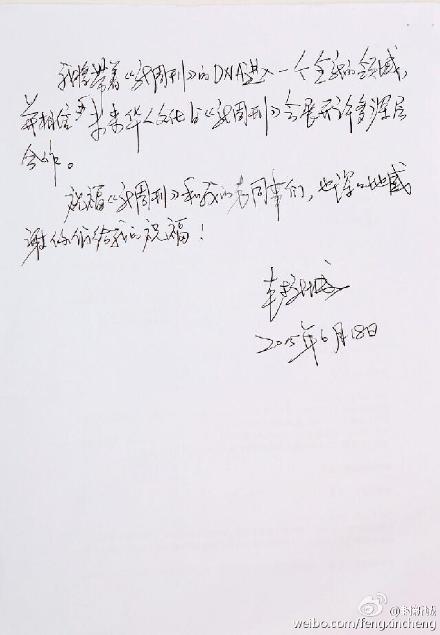 我将带着《新周刊》的DNA进入一个全新的领域,
并相信,未来华人文化与《新周刊》会展开许多深层
合作。
祝福《新周刊》和我的老同事们,也深深地感
谢你们给我的祝福!
封新城
2015年6月18日
@封新城
weibo.com/fengxincheng